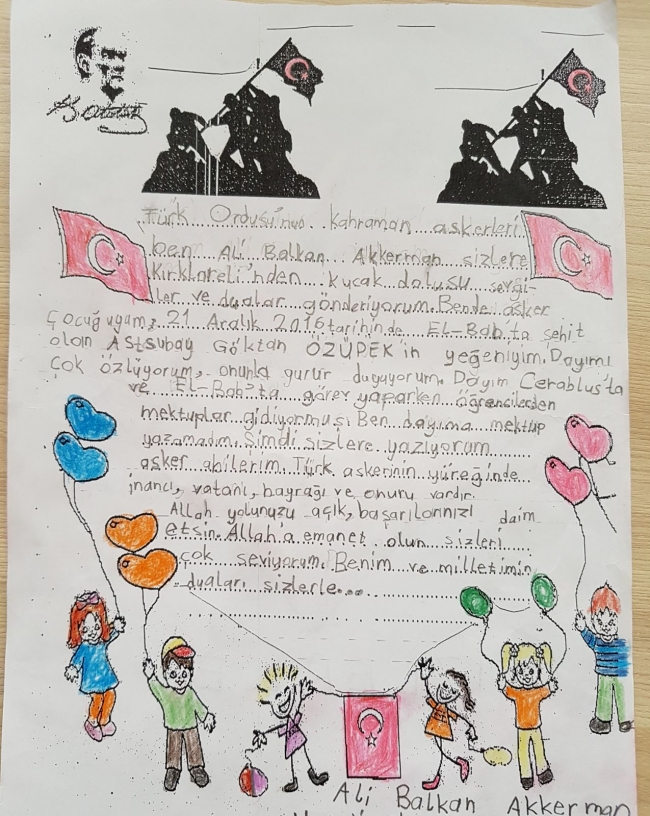 K. Atatürk
Türk Ordusu'nun kahraman askerleri
ben Ali Balkan Akkerman sizlere
Kırklareli'nden kucak dolusu sevgi-
ler ve dualar gönderiyorum. Bende asker
Çocuğuyum. 21 Aralık 2016 tarihinde El-Bab'ta şehit
olan Astsubay Göktan ÖZÜPEK'in yeğeniyim. Dayımı
çok özlüyorum, onunla gurur duyuyorum. Dayım Cerablus'ta
ve El-Bab'ta görev yaparken öğrencilerden
mektuplar gidiyormuş. Ben dayıma mektup
yazamadım. Şimdi sizlere yazıyorum
asker abilerim. Türk askerinin yüreğinde
inancı, vatanı, bayrağı ve onuru vardır.
Allah yolunuzu açık, başarılarınızı daim
etsin. Allah'a emanet olun sizleri
çok seviyorum. Benim ve milletimin
duaları sizlerle...
Ali Balkan Akkerman